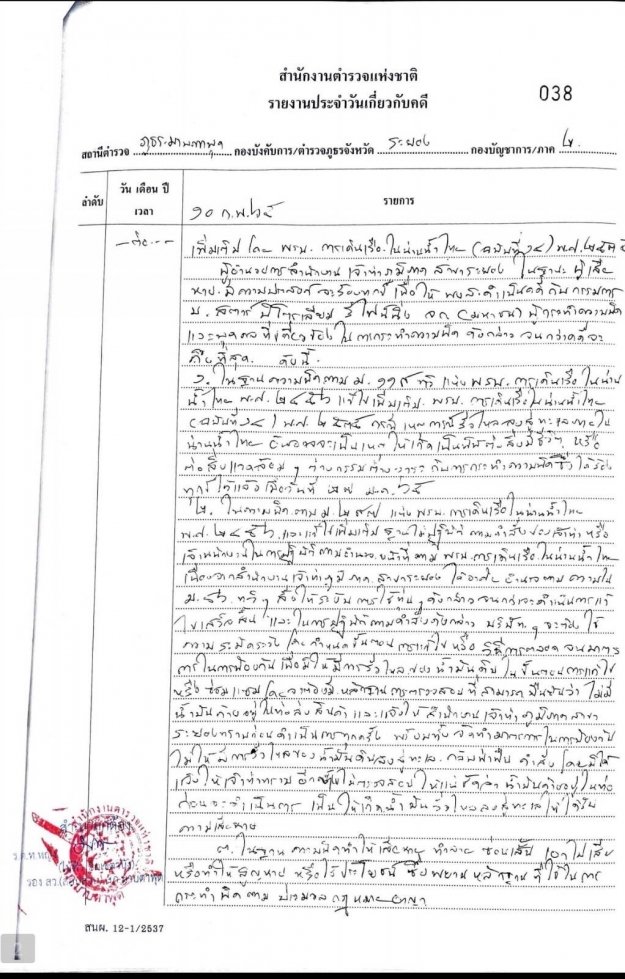 สำนักงานตำรวจแห่งชาติ
รายงานประจำวันเกี่ยวกับคดี
038
สถานีตำรวจ ภูธรมาบตาพุด กองบังคับการ/ตำรวจภูธรจังหวัด ระยอง กองบัญชาการ/ภาค ๒
ลำดับ วัน เดือน ปี เวลา รายการ
๑๐ ก.พ. ๖๕
-ต่อ-
เพิ่มเติม โดย พรบ. การเดินเรือในน่านน้ำไทย (ฉบับที่ ๑๔) พ.ศ. ๒๕๓๕
ผู้อำนวยการสำนักงานเจ้าท่าภูมิภาค สาขาระยอง ในฐานะ ผู้เสีย
หาย มีความประสงค์จะร้องทุกข์ เพื่อให้ พงส. ดำเนินคดีกับกรรมการ
บ. สตาร์ ปิโตรเลียม รีไฟน์นิ่ง จก. (มหาชน) ผู้กระทำความผิด
และบุคคลที่เกี่ยวข้องในการกระทำความผิดดังกล่าว จนกว่าคดีจะ
ถึงที่สุด ดังนี้
๑. ในฐานความผิดตาม ม. ๑๑๙ ทวิ แห่ง พรบ. การเดินเรือในน่าน
น้ำไทย พ.ศ. ๒๔๕๖ แก้ไขเพิ่มเติม พรบ. การเดินเรือในน่านน้ำไทย
(ฉบับที่ ๑๔) พ.ศ. ๒๕๓๕ กรณี เหตุการณ์รั่วไหลลงสู่ทะเลภายใน
น่านน้ำไทย อันอาจจะเป็นเหตุให้เกิดเป็นพิษต่อสิ่งมีชีวิต หรือ
ต่อสิ่งแวดล้อม ต่างกรรมต่างวาระ กับการกระทำความผิดซึ่งได้ร้อง
ทุกข์ไว้แล้ว เมื่อวันที่ ๒๗ ม.ค. ๖๕
๒. ในความผิดตาม ม. ๒๙๗ แห่ง พรบ. การเดินเรือในน่านน้ำไทย
พ.ศ. ๒๔๕๖ และแก้ไขเพิ่มเติม ฐานไม่ปฏิบัติตามคำสั่งของเจ้าท่า หรือ
เจ้าพนักงานในการปฏิบัติตามอำนาจหน้าที่ตาม พรบ. การเดินเรือในน่านน้ำไทย
เนื่องจากสำนักงานเจ้าท่าภูมิภาค สาขาระยอง ได้อาศัยอำนาจตามความใน
ม. ทวิ สั่งให้ระงับการใช้ทุ่น ดังกล่าว จนกว่าจะดำเนินการแก้
ไขเสร็จสิ้น และในการปฏิบัติตามคำสั่งดังกล่าว บริษัทฯ จะต้องใช้
ความระมัดระวัง โดยกำหนดขั้นตอนการแก้ไข หรือ วิธีการตลอดจนมาตร
การในการป้องกัน เพื่อมิให้มีการรั่วไหลของน้ำมันดิบในขั้นตอนการแก้ไข
หรือซ่อมแซม โดยจะต้องมีหลักฐานการตรวจสอบที่สามารถยืนยันว่า ไม่มี
น้ำมันค้างอยู่ในท่อส่งสินค้า และแจ้งให้สำนักงานเจ้าท่าภูมิภาค สาขา
ระยองทราบก่อนดำเนินการทุกครั้ง พร้อมทั้งจัดทำมาตรการในการป้องกัน
ไม่ให้มีการรั่วไหลของน้ำมันดิบลงสู่ทะเล กลับฝ่าฝืน คำสั่ง โดยมิได้
แจ้งให้เจ้าท่าทราบ อีกทั้งไม่ตรวจสอบให้แน่ชัดว่า น้ำมันค้างอยู่ในท่อ
ก่อนจะดำเนินการ เป็นให้เกิดน้ำมันรั่วไหลลงสู่ทะเลให้ได้รับ
ความเสียหาย
๓. ในฐานความผิดทำให้เสียหาย ทำลาย ซ่อนเร้น เอาไปเสีย
หรือทำให้สูญหาย หรือไร้ประโยชน์ ซึ่งพยานหลักฐาน ที่ใช้ในการ
กระทำผิดตาม ประมวลกฎหมายอาญา
สำเนาถูกต้อง
สนผ. 12-1/2537